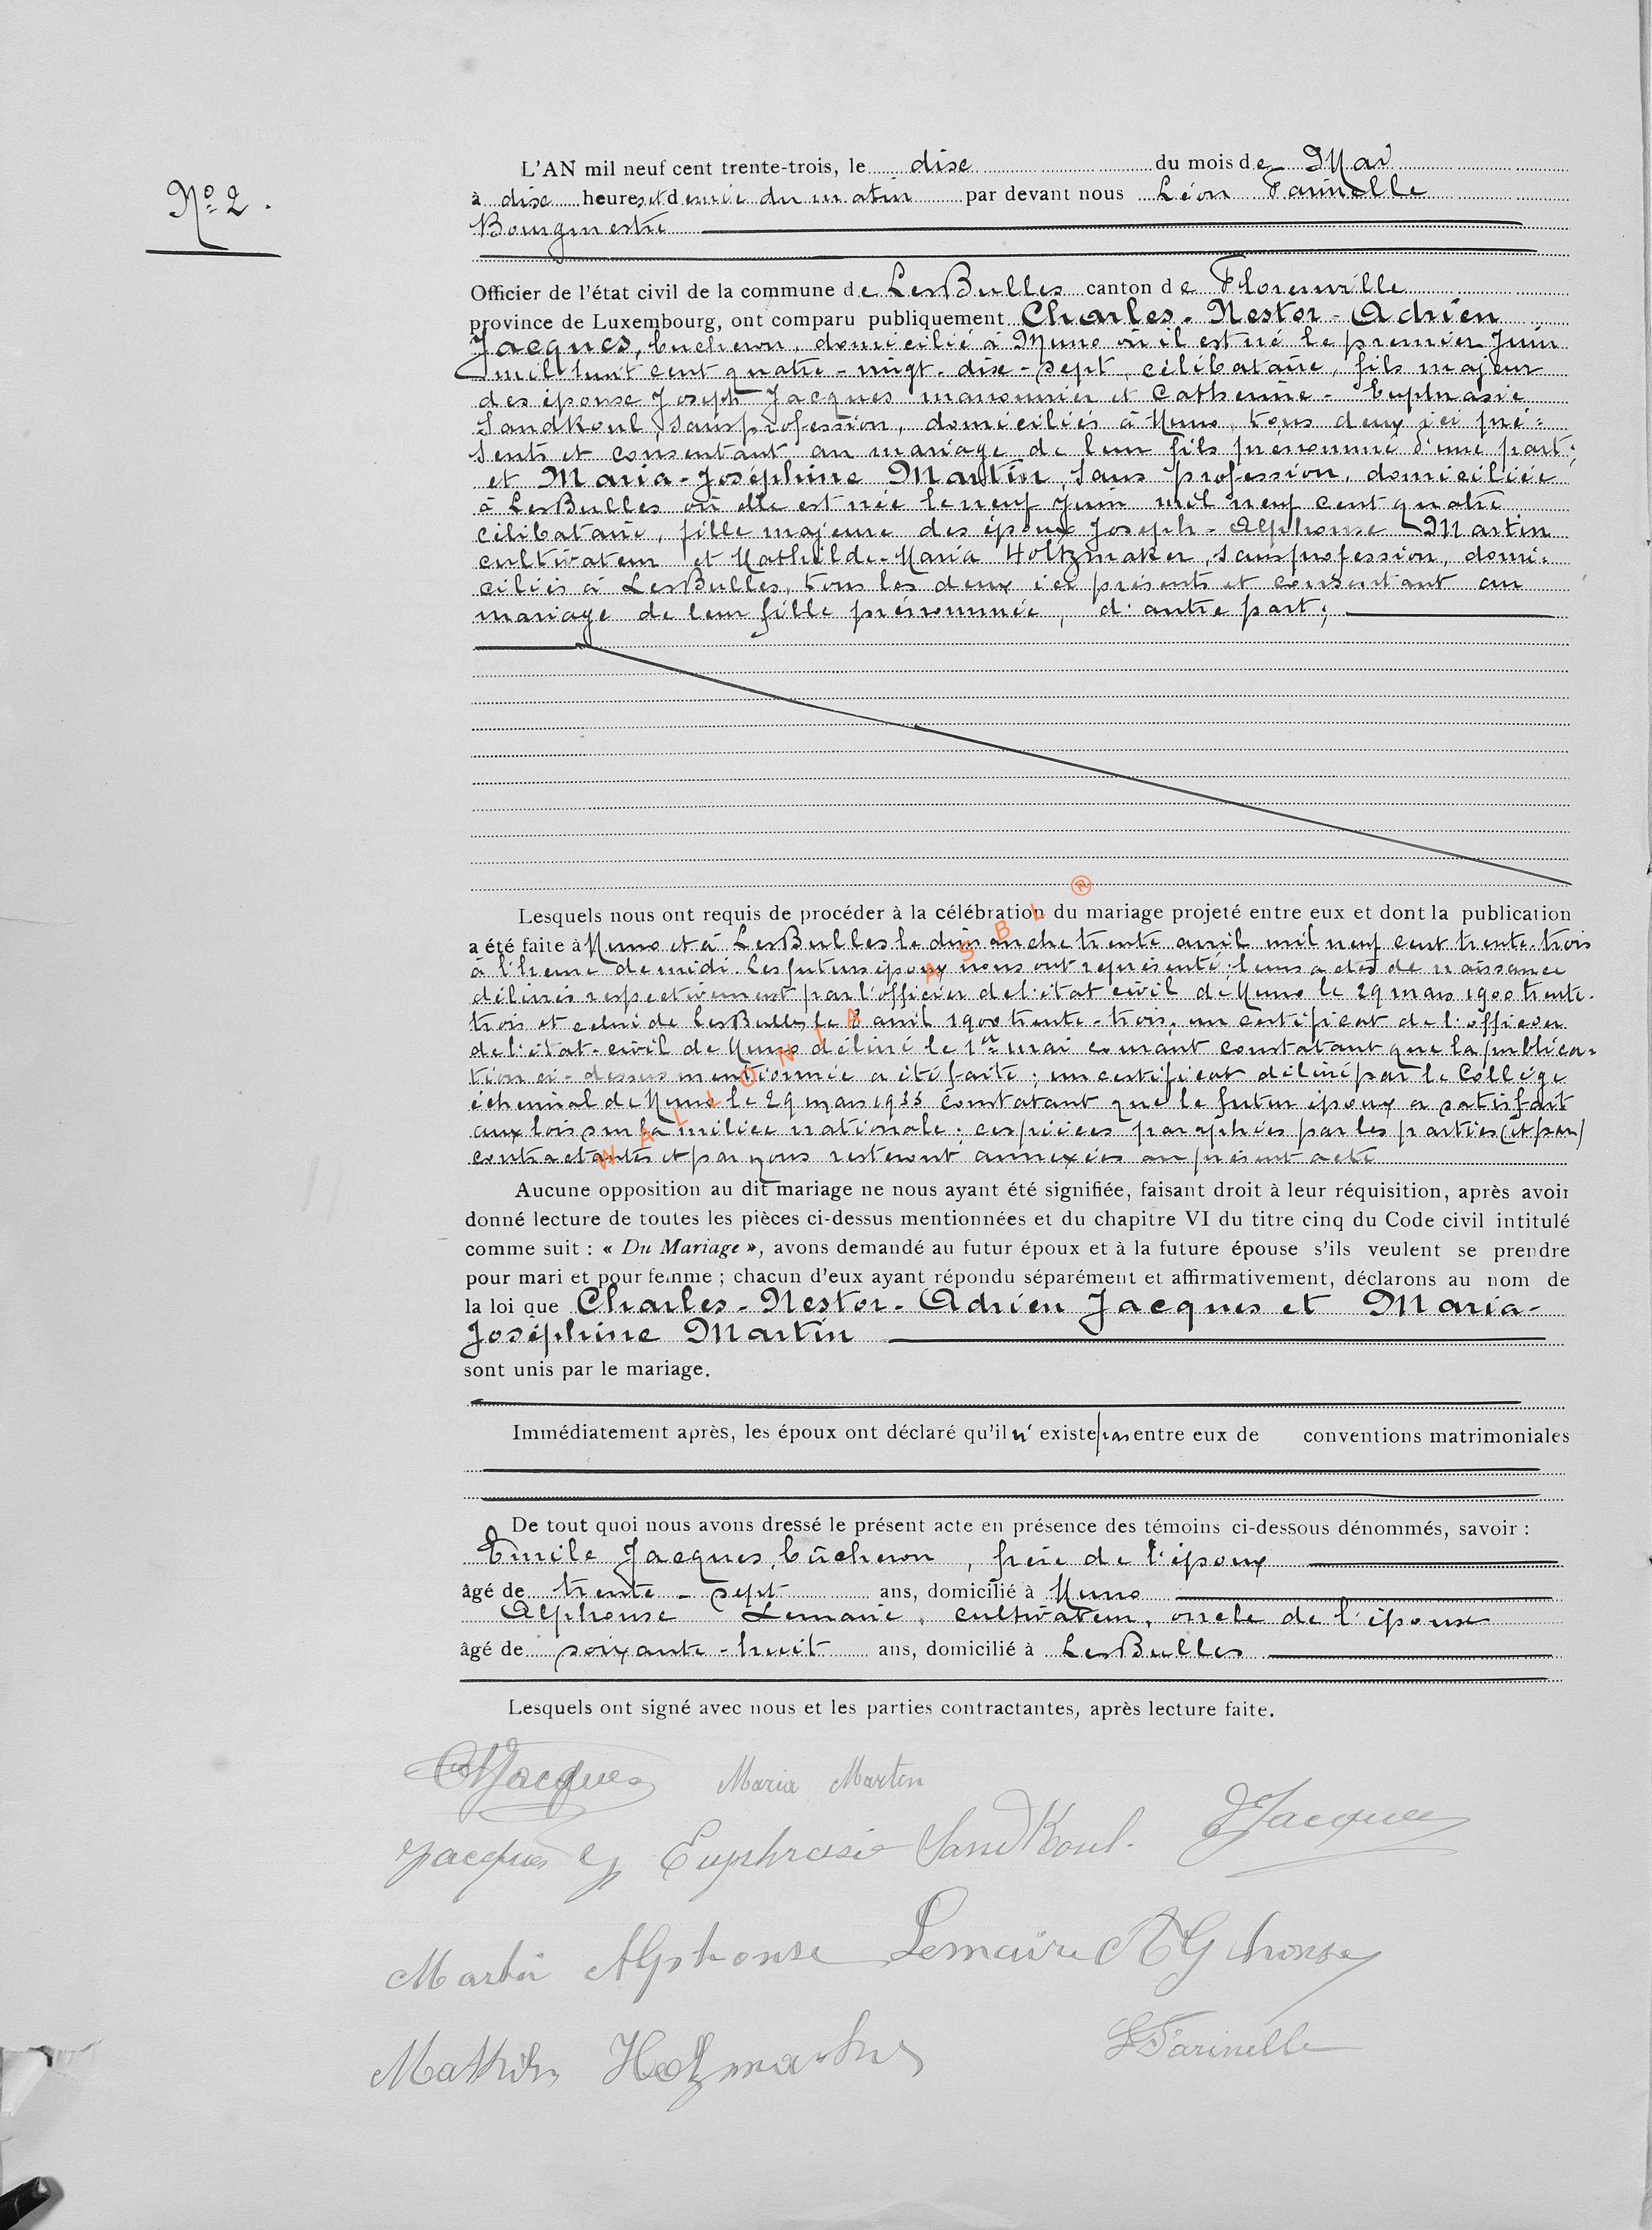 Nº 2.
L'AN mil neuf cent trente-trois, le dixe du mois de Mai
à dixe heures et demie du matin par devant nous Léon Farinelle
Bourgmestre
Officier de l'état civil de la commune de Les Bulles canton de Florenville
province de Luxembourg, ont comparu publiquement Charles-Nestor-Adrien
Jacques, bucheron, domicilié à Muno où il est né le premier Juin
mil huit cent quatre-vingt-dix-sept, célibataire, fils majeur
des épouse Joseph Jacques manouvrier et Catherine-Euphrasie
Sandkoul, sans profession, domiciliés à Muno, tous deux ici pré-
sents et consentant au mariage de leur fils prénommé d'une part;
et Maria-Joséphine Martin, sans profession, domiciliée
à Les Bulles où elle est née le neuf Juin mil neuf cent quatre
célibataire, fille majeure des époux Joseph-Alphonse Martin
cultivateur et Mathilde-Maria Holtzmaker, sans profession, domi-
ciliés à Les Bulles, tous les deux ici présents et consentant au
mariage de leur fille prénommée, d'autre part;
Lesquels nous ont requis de procéder à la célébration du mariage projeté entre eux et dont la publication
a été faite à Muno et à Les Bulles le dimanche trente avril mil neuf cent trente-trois
à l'heure de midi. Les futurs époux nous ont représenté: leurs actes de naissance
délivrés respectivement par l'officier de l'état civil de Muno le 29 mars 1900 trente-
trois et celui de Les Bulles le 8 avril 1900 trente-trois, un certificat de l'officier
de l'état-civil de Muno délivré le 1er mai courant constatant que la publica-
tion ci-dessus mentionnée a été faite; un certificat délivré par le Collège
échevinal de Muno le 29 mars 1933 constatant que le futur époux a satisfait
aux lois sur la milice nationale; ces pièces paraphées par les parties (et par)
contractantes et par nous resteront annexées au présent acte
WALLONIA ASBL ®
Aucune opposition au dit mariage ne nous ayant été signifiée, faisant droit à leur réquisition, après avoir
donné lecture de toutes les pièces ci-dessus mentionnées et du chapitre VI du titre cinq du Code civil intitulé
comme suit : « Du Mariage », avons demandé au futur époux et à la future épouse s'ils veulent se prendre
pour mari et pour femme ; chacun d'eux ayant répondu séparément et affirmativement, déclarons au nom de
la loi que Charles-Nestor-Adrien Jacques et Maria-
Joséphine Martin
sont unis par le mariage.
Immédiatement après, les époux ont déclaré qu'il n'existe pas entre eux de conventions matrimoniales
De tout quoi nous avons dressé le présent acte en présence des témoins ci-dessous dénommés, savoir :
Emile Jacques, bûcheron, frère de l'époux
âgé de trente-sept ans, domicilié à Muno
Alphonse Lemaire, cultivateur, oncle de l'épouse
âgé de soixante-huit ans, domicilié à Les Bulles
Lesquels ont signé avec nous et les parties contractantes, après lecture faite.
Jacques Maria Martin
Jacques Euphrasie Sandkoul. Jacques
Martin Alphonse Lemaire Alphonse
Mathilde Holzmacker L Farinelle